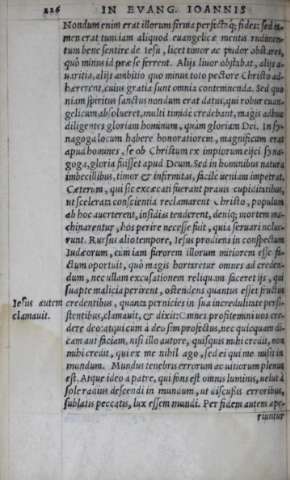 226 IN EVANG. IOANNIS
Nondum enim erat illorum firma perfectaq; fides: sed ta-
men erat tum iam aliquod euangelicæ mentis rudimen-
tum bene sentire de Iesu, licet timor ac pudor obstaret,
quo minus id præ se ferrent. Alijs liuor obstabat, alijs a-
uaritia, alijs ambitio quo minus toto pectore Christo ad-
hærerent, cuius gratia sunt omnia contemnenda. Sed quo
niam spiritus sanctus nondum erat datus, qui robur euan-
gelicum absolueret, multi timide credebant, magis adhuc
diligentes gloriam hominum, quàm gloriam Dei. In sy-
nagoga locum habere honoratiorem, magnificum erat
apud homines, sed ob Christum ex impiorum eijci syna-
goga, gloria fuisset apud Deum. Sed in hominibus natura
imbecillibus, timor & infirmitas, facile ueniam impetrat.
Cæterum, qui sic excæcati fuerant prauis cupiditatibus,
ut scelerata conscientia reclamarent Christo, populum
ab hoc auerterent, insidias tenderent, deniq; mortem ma-
chinarentur, hos perire necesse fuit, quia seruari nolue-
runt. Rursus alio tempore, Iesus prodiens in conspectum
Iudæorum, cum iam furorem illorum mitiorem esse fa-
ctum oportuit, quò magis hortaretur omnes ad creden-
dum, nec ullam excusationem reliquam faceret ijs, qui
suapte malicia perirent, ostendens quantus esset fructus
Iesus autem credentibus, quanta pernicies in sua incredulitate persi-
clamauit. stentibus, clamauit, & dixit: Omnes profitemini uos cre-
dere deo: atqui cum à deo sim profectus, nec quicquam di-
cam aut faciam, nisi illo autore, quisquis mihi credit, non
mihi credit, qui ex me nihil ago, sed ei qui me misit in
mundum. Mundus tenebris errorum ac uitiorum plenus
est. Atque ideo à patre, qui fons est omnis luminis, uelut à
sole radius descendi in mundum, ut discussis erroribus,
sublatis peccatis, lux essem mundi. Per fidem autem ape-
riuntur